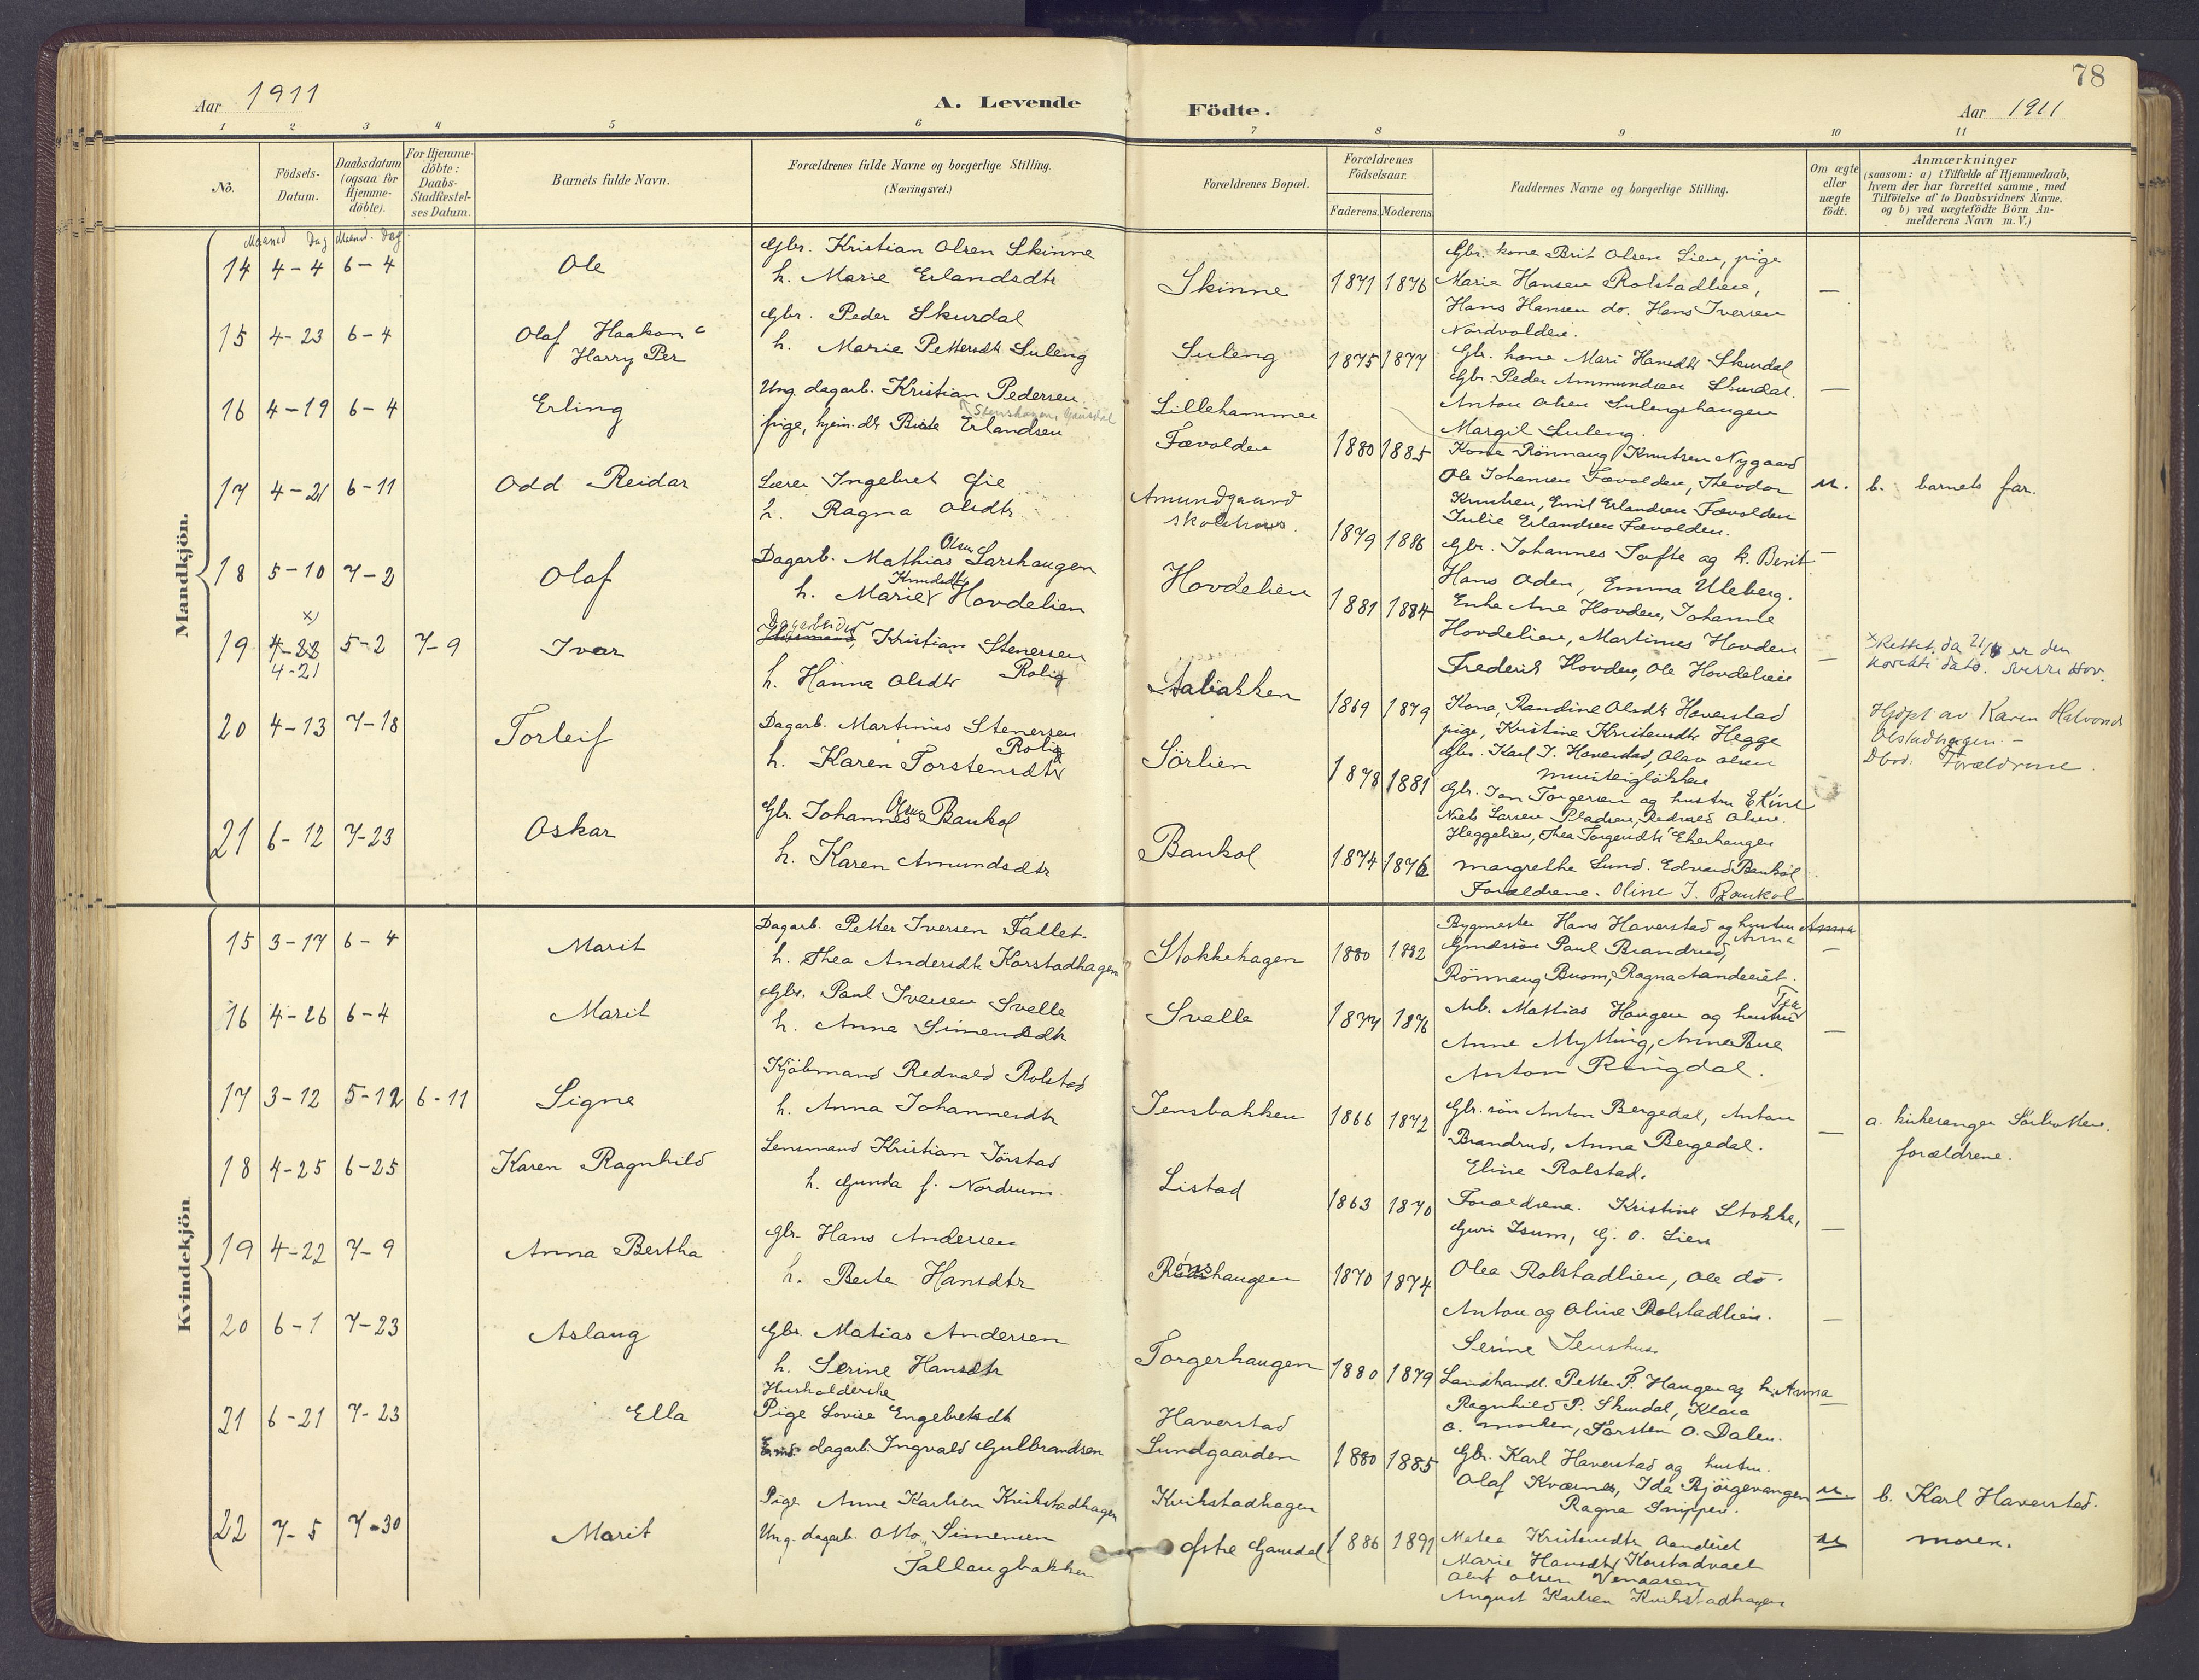 78
Aar 1911
A. Levende Födte.
Aar 1911
1 2 3 4 5 6 7 8 9 10 11
No.
Födsels-
Datum.
Daabsdatum
(ogsaa for
Hjemme-
döbte).
For Hjemme-
döbte:
Daabs-
Stadfæstel-
ses Datum.
Barnets fulde Navn.
Forældrenes fulde Navne og borgerlige Stilling.
(Næringsvei.)
Forældrenes Bopæl.
Forældrenes
Födselsaar.
Faderens. Moderens
Faddernes Navne og borgerlige Stilling.
Om ægte
eller
uægte
födt.
Anmærkninger
(saasom: a) i Tilfælde af Hjemmedaab,
hvem der har forrettet samme, med
Tilföielse af to Daabsvidners Navne,
og b) ved uægtefödte Börn An-
melderens Navn m.V.)
Maaned Dag Maaned. Dag
Mandkjön.
14 4-4 6-4 Ole
Gbr. Kristian Olsen Skinne
h. Marie Erlandsdtr
Skinne 1871 1876
Gbr. kone Brit Olsen Lien, pige
Marie Hansen Rolstadlien,
Hans Hansen do. Hans Iversen
Nordvolden.
—
15 4-23 6-4 Olaf Haakon
Harry Per
Gbr. Peder Skurdal
h. Marie Pettersdtr Suleng
Suleng 1875 1877
Gbr. kone Mari Hansdtr Skurdal
Gbr. Peder Ammundsen Skurdal.
Anton Olsen Sulengshaugen
Margit Suleng.
—
16 4-19 6-4 Erling
Ung. dagarb. Kristian Pedersen
pige, hjem. dtr Erlandsen
Lillehammer
Fævolden 1880 1885
Kone Rönnaug Knutsen Nygaard
Ole Johansen Fævolden, Theodor
Knutsen, Emil Erlandsen Fævolden
Julie Erlandsen Fævolden.
u. b. barnets far.
17 4-21 6-11 Odd Reidar
Lærer Ingebret Øie
h. Ragna Olsdtr
Amundgaard
skolehus. 1879 1886
Gbr. Johannes Tofte og k. Berit
Hans Oden, Emma Uleberg.
—
18 5-10 7-2 Olaf
Dagarb. Mathias Olsen Larshaugen
h. Marie Knudsdtr Hovdelien
Hovdelien 1881 1884
Enke Ane Hovden, Johanne
Hovdelien, Martines Hovden
Frederik Hovden, Ole Hovdelien
—
x)
19 4-22 5-2 7-9 Ivar
4-21
Dagarbeider
Husmand, Kristian Stenersen
Rolig
h. Hanna Olsdtr
1869 1879
Kone, Randine Olsdtr Haverstad
pige, Kristine Kristensdtr Hegge
Gbr. Karl J. Haverstad, Olav Olsen
x Rettet, da 21/4 er den
korekte dato. Sverre Hov.
20 4-13 7-18 Torleif
Dagarb. Martinus Stenersen
Rolig
h. Karen Torstensdtr
Sörlien 1878 1881
Gbr. Jon Torgersen og hustru Eline
Niels Larsen Pladsen, Redvald Olsen
Heggelien, Thea Torgersdtr Ekerhaugen
Hjdpt av Karen Halvorsd.
Olstadhagen. —
Dbvd. Forældrene.
21 6-12 7-23 Oskar
Gbr. Johannes Olsen Baukol
h. Karen Amundsdtr
Baukol 1874 1876
Margrethe Lund. Edvard Baukol
Forældrene. Oline J. Baukol
Kvindekjön
15 3-17 6-4 Marit
Dagarb. Petter Iversen Fallet.
h. Thea Andersdtr Korstadhagen
Stokkehagen 1880 1882
Bygmester Hans Haverstad og hustru Anna
Anna
Gmdssön Paul Brandrud,
Rönnaug Buom, Ragna Aanderiet.
—
16 4-26 6-4 Marit
Gbr. Paul Iversen Svelle
h. Anne Simensdtr
Svelle 1877 1876
Arb. Mathias Haugen og hustru Thea
Anne Mytting, Anne Bue
Anton Ringdal.
—
17 3-12 5-12 6-11 Signe
Kjöbmand Redvald Rolstad
h. Anna Johannesdtr
Jensbakken 1866 1872
Gbr. sön Anton Bergedal, Anton
Brandrud, Anna Bergedal.
Eline Rolstad.
—
a. kirkesanger Sörbotten.
forældrene.
18 4-25 6-25 Karen Ragnhild
Lensmand Kristian Jörstad
h. Gunda f. Nordrum.
Listad 1863 1870
Forældrene. Kristine Stokke,
Guri Isum, G. O. Lien
—
19 4-22 7-9 Anna Bertha
Gbr. Hans Andersen
h. Berte Hansdtr
1870 1874
Olea Rolstadlien, Ole do.
Anton og Oline Rolstadlien.
Serine Jenshus
—
20 6-1 7-23 Aslaug
Gbr. Matias Andersen
h. Serine Hansdtr
Torgerhaugen 1880 1879
Landhandl. Petter P. Haugen og h. Anna
Ragnhild P. Skurdal, Klara
O. Morken, Torsten O. Dalen.
—
21 6-21 7-23 Ella
Husholderske
Pige Lovise Engebretsdtr
dagarb. Ingvald Gulbrandsen
Haverstad
Lundgaarden 1880 1885
Gbr. Karl Haverstad og hustru.
Olaf Kværnes, Ida Bjöigevangen
Ragna Snippen.
u. b. Karl Haverstad.
22 7-5 7-30 Marit
Pige Anne Karlsen Kvikstadhagen
Ung. dagarb. Otto Simensen
Fallaugbakken
Kvikstadhagen
Østre Gausdal 1886 1891
Matea Kristensdtr Aanderiet
Marie Hansdtr Korstadvælt
Oluf Olsen Venaasen
August Karlsen Kvikstadhagen
u moren.